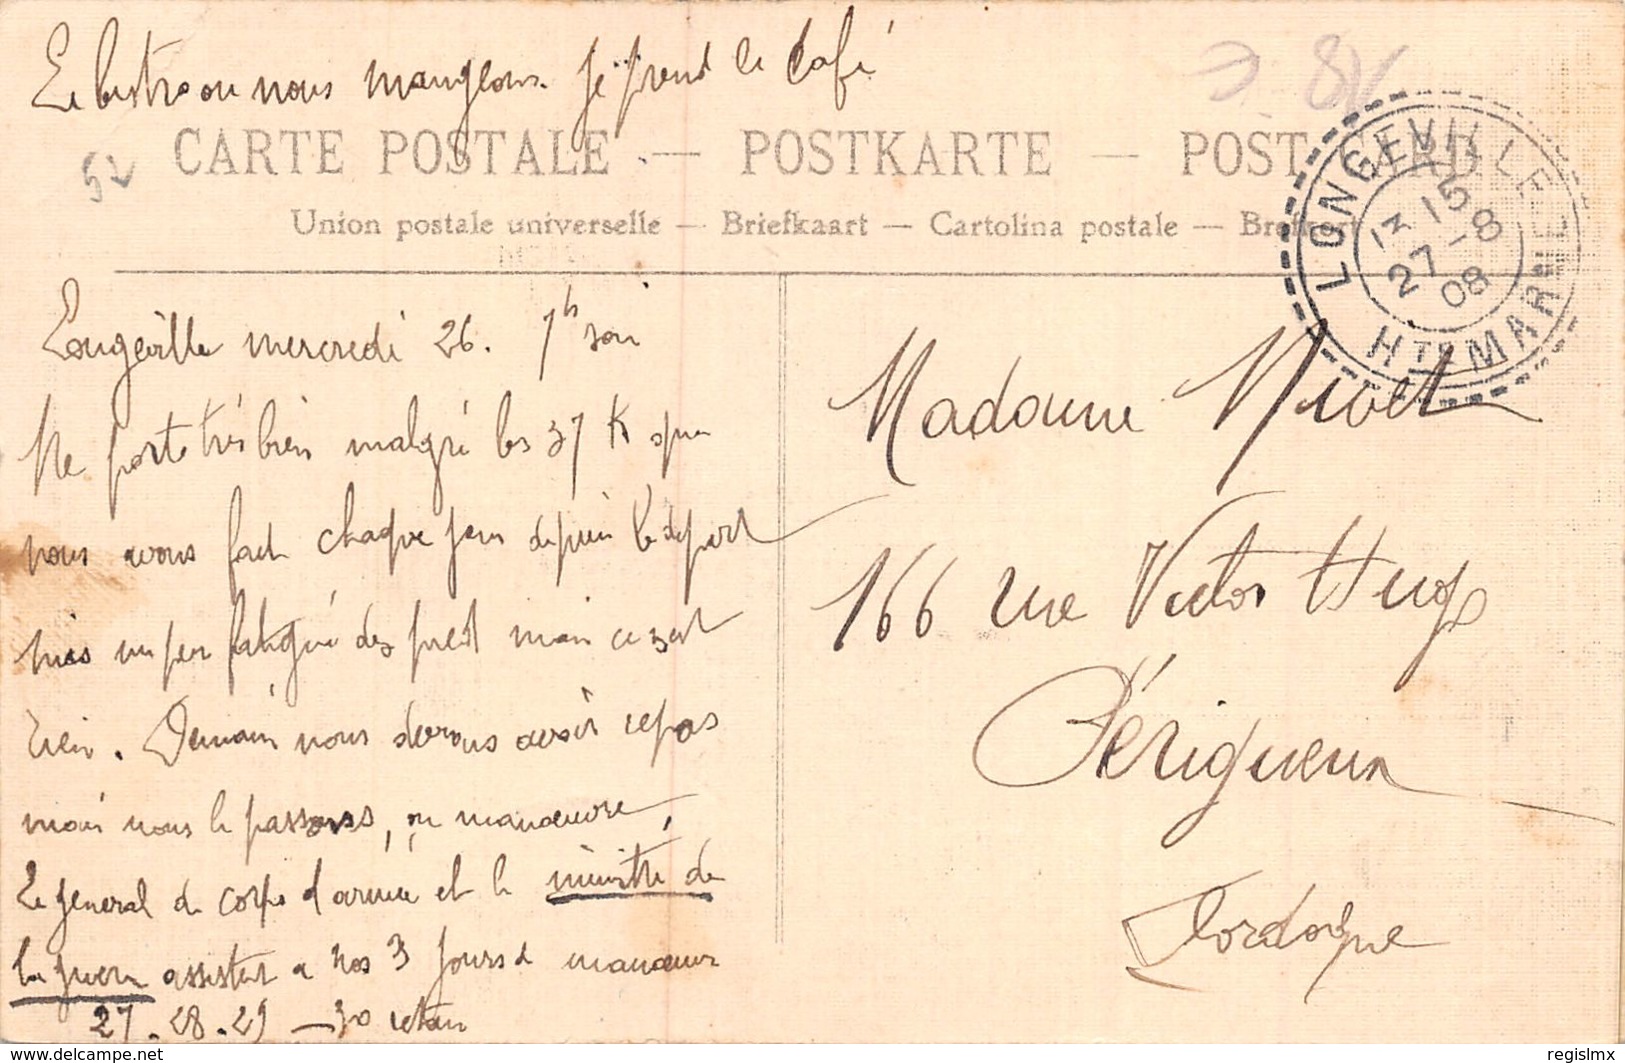 Le bistro ou nous mangeons. Je prend le café
52
CARTE POSTALE — POSTKARTE — POST CARD
Union postale universelle — Briefkaart — Cartolina postale — Brefkort
LONGEVILLE
13 15
27 - 8
08
HTE MARNE
Longeville mercredi 26. 7h soir
Me porte très bien malgré les 37 K que
nous avons fait chaque jour depuis le départ
suis un peu fatigué des pied mais ce n'est
rien. Demain nous devrons avoir repos
mais nous le passons, en manœuvre,
Le général de corps d'armée et le ministre de
la guerre assistent a nos 3 jours d manœuvre
27 - 28 - 29 — 30 retour
Madame Nivet
166 rue Victor Hugo
Périgueux
Dordogne
delcampe.net
regislmx